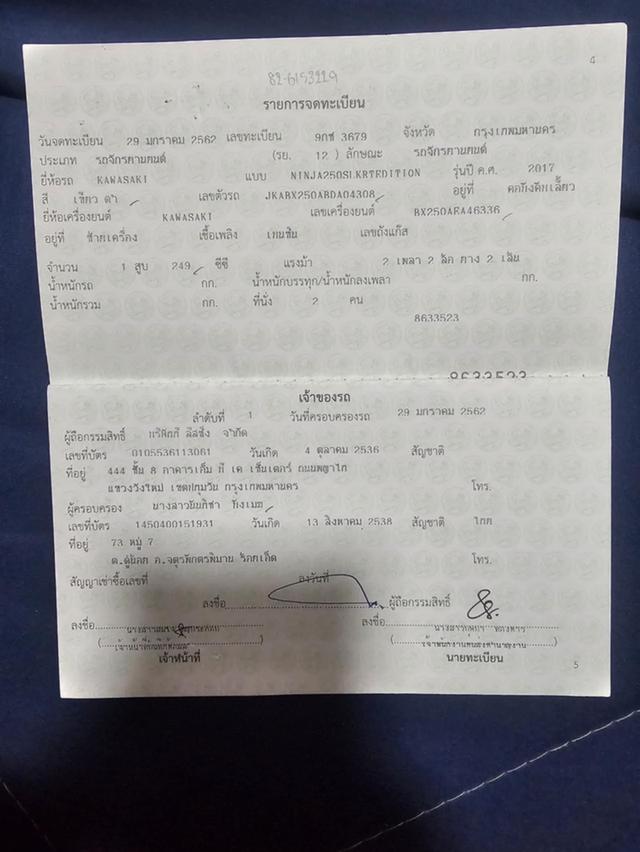 4
82-6153229
รายการจดทะเบียน
วันจดทะเบียน 29 มกราคม 2562 เลขทะเบียน 9กช 3679 จังหวัด กรุงเทพมหานคร
ประเภท รถจักรยานยนต์ (รย. 12 ) ลักษณะ รถจักรยานยนต์
ยี่ห้อรถ KAWASAKI แบบ NINJA250SL KRTEDITION รุ่นปี ค.ศ. 2017
สี เขียว ดำ เลขตัวรถ JKABX250ABDA04308 อยู่ที่ คอถังคีบเลี้ยว
ยี่ห้อเครื่องยนต์ KAWASAKI เลขเครื่องยนต์ BX250AEA46336
อยู่ที่ ซ้ายเครื่อง เชื้อเพลิง เบนซิน เลขถังแก๊ส
จำนวน 1 สูบ 249 ซีซี แรงม้า 2 เพลา 2 ล้อ ยาง 2 เส้น
น้ำหนักรถ กก. น้ำหนักบรรทุก/น้ำหนักลงเพลา กก.
น้ำหนักรวม กก. ที่นั่ง 2 คน
8633523
8633523
เจ้าของรถ
ลำดับที่ 1 วันที่ครอบครองรถ 29 มกราคม 2562
ผู้ถือกรรมสิทธิ์ ลีสซิ่ง จำกัด
เลขที่บัตร 0105536113061 วันเกิด 4 ตุลาคม 2536 สัญชาติ
ที่อยู่ 444 ชั้น 8 อาคารเอ็ม บี เค เซ็นเตอร์ ถนนพญาไท
แขวงวังใหม่ เขตปทุมวัน กรุงเทพมหานคร โทร.
ผู้ครอบครอง นางสาว
เลขที่บัตร 1450400151931 วันเกิด 13 สิงหาคม 2538 สัญชาติ ไทย
ที่อยู่ 73 หมู่ 7
ต.ดู่น้อย อ.จตุรพักตรพิมาน ร้อยเอ็ด โทร.
สัญญาเช่าซื้อเลขที่ ลงวันที่
ลงชื่อ ผู้ถือกรรมสิทธิ์
ลงชื่อ ลงชื่อ
เจ้าหน้าที่ นายทะเบียน
5